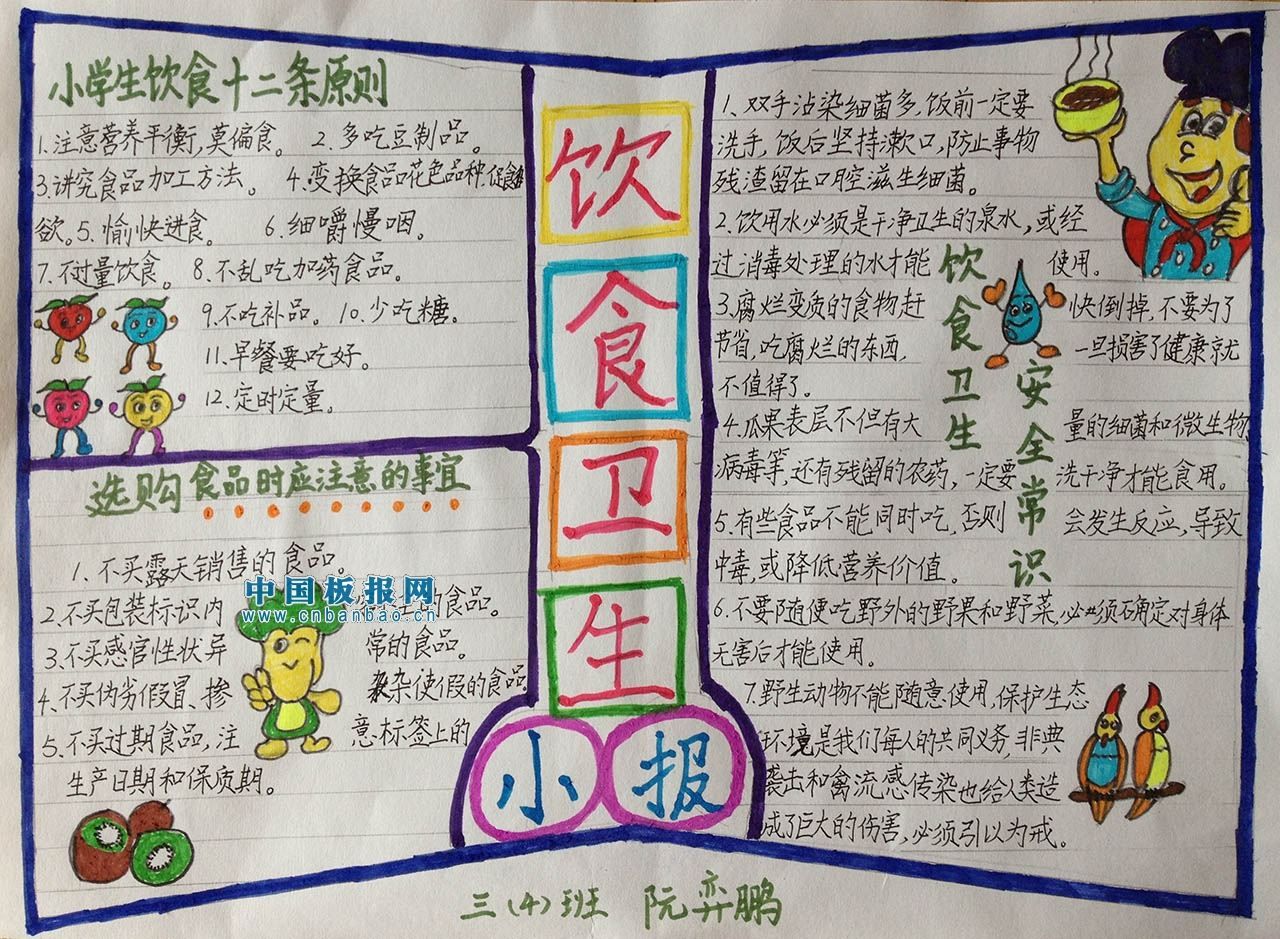 小学生饮食十二条原则
1.注意营养平衡,莫偏食。 2.多吃豆制品。
3.讲究食品加工方法。 4.变换食品花色品种.促食
欲。5.愉快进食。 6.细嚼慢咽。
7.不过量饮食。 8.不乱吃加药食品。
9.不吃补品。 10.少吃糖。
11.早餐要吃好。
12.定时定量。
选购食品时应注意的事宜
1.不买露天销售的食品。
2.不买包装标识内 的食品。
3.不买感官性状异 常的食品。
4.不买伪劣假冒、掺 杂使假的食品.
5.不买过期食品,注 意标签上的
生产日期和保质期。
中国板报网
www.cnbanbao.cn
饮
食
卫
生
小报
饮食卫生
安全常识
1.双手沾染细菌多,饭前一定要
洗手,饭后坚持漱口,防止事物
残渣留在口腔滋生细菌。
2.饮用水必须是干净卫生的泉水,或经
过消毒处理的水才能 使用。
3.腐烂变质的食物赶 快倒掉,不要为了
节省,吃腐烂的东西, 一旦损害了健康就
不值得了。
4.瓜果表层不但有大 量的细菌和微生物
病毒等,还有残留的农药,一定要 洗干净才能食用。
5.有些食品不能同时吃,否则 会发生反应,导致
中毒,或降低营养价值。
6.不要随便吃野外的野果和野菜,必须确定对身体
无害后才能使用。
7.野生动物不能随意使用,保护生态
环境是我们每人的共同义务,非典
袭击和禽流感传染也给人类造
成了巨大的伤害,必须引以为戒。
三(4)班 阮弈鹏